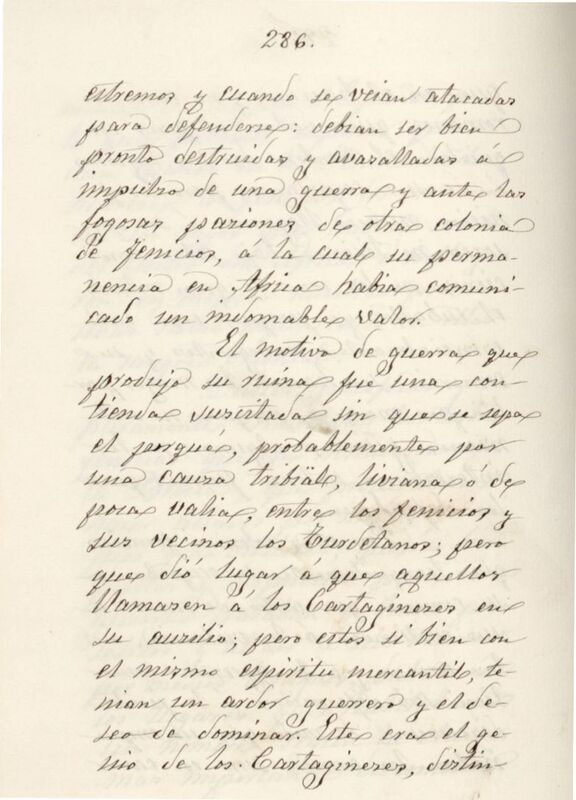 286.
estremos y cuando se veian atacadas
para defenderse: debian ser bien
pronto destruidas y avasalladas á
impulso de una guerra y ante las
fogosas pasiones de otra colonia
de Fenicios, á la cual su perma-
nencia en Africa habia comuni-
cado un indomable valor.
El motivo de guerra que
produjo su ruina fue una con-
tienda suscitada sin que se sepa
el porqué, probablemente por
una causa tribiäl, liviana ó de
poca valia, entre los fenicios y
sus vecinos los Turdetanos; pero
que dió lugar á que aquellos
llamasen á los Cartagineses en
su ausilio; pero estos si bien con
el mismo espiritu mercantil, te-
nian un ardor guerrero y el de-
seo de dominar. Este era el ge-
nio de los Cartagineses, distin-